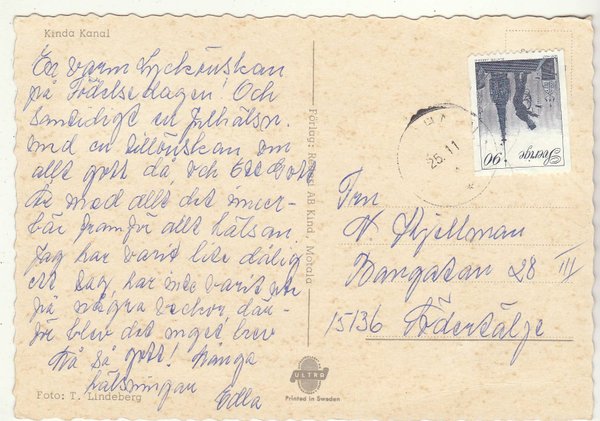 Kinda Kanal
En varm Lyckönskan
på Födelsedagen! Och
samtidigt en Julhälsn.
med en tillönskan om
allt gott då, och Ett Gott
År med allt det inne-
bär framför allt hälsan
Jag har varit lite dålig
ett tag, har inte varit ute
på några veckor, där-
för blev det inget brev
Må så gott! Många
hälsningar
Edla
Foto: T. Lindeberg
Förlag: AB Kind, Motala
ULTRA
Printed in Sweden
25.11
Sverige
90
Fru
N. Kjellman
Bangatan 28 III
15136 Södertälje